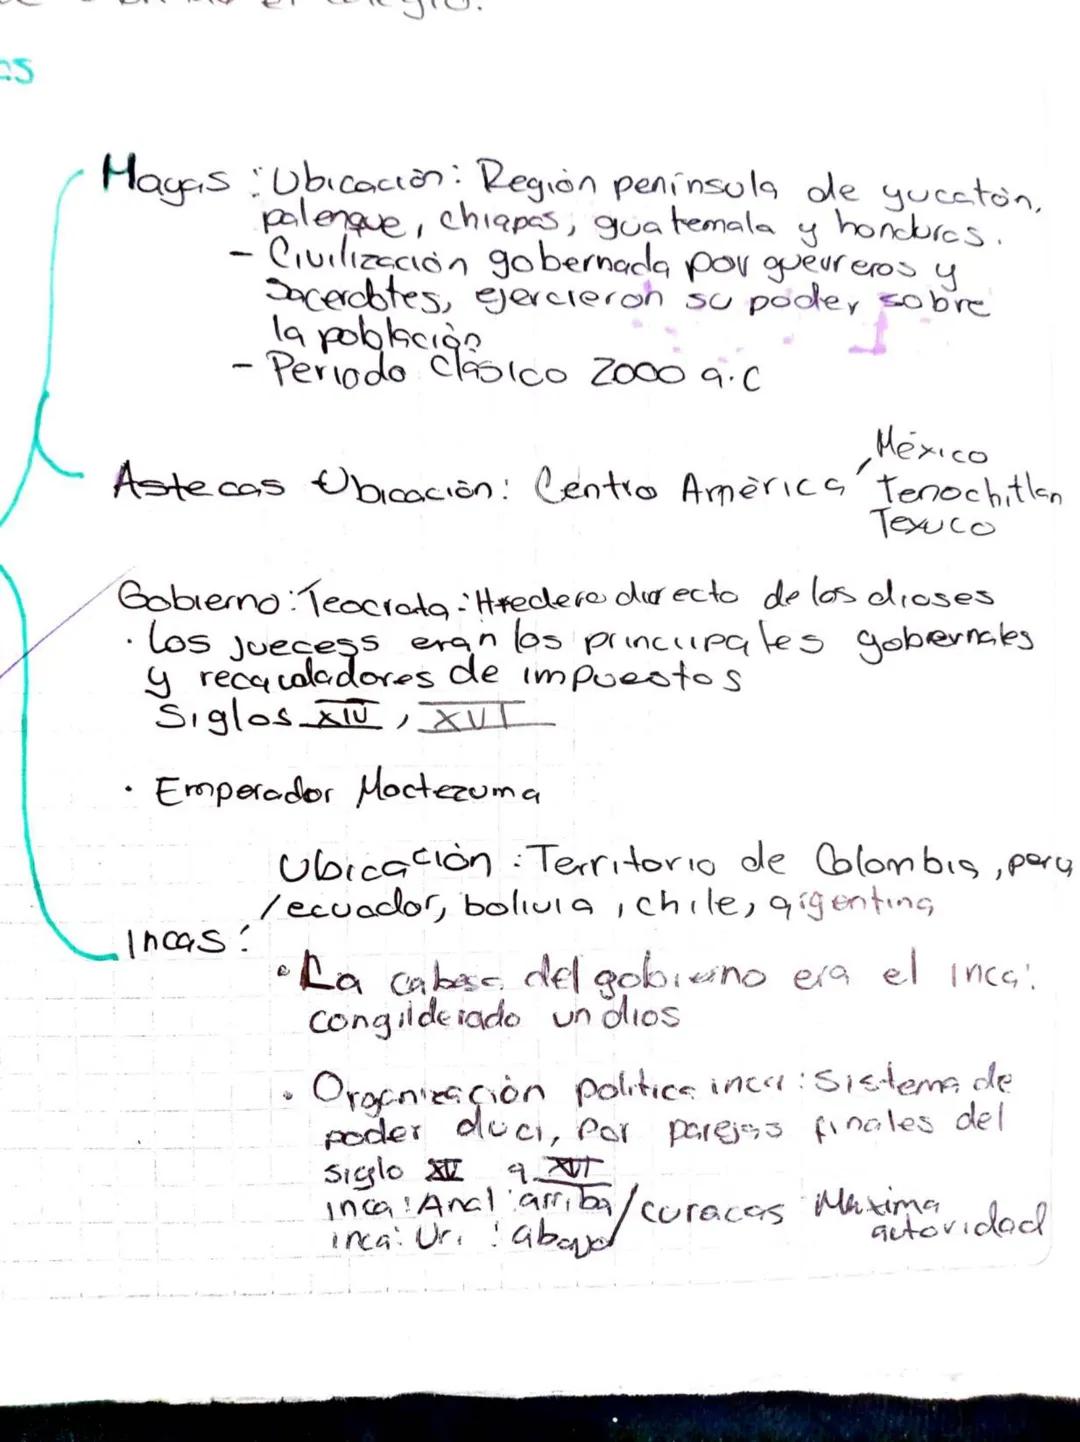 Mayas : Ubicación: Región península de yucatón,
palenque, chiapas, guatemala y honduras.
- Civilización gobernada por guerreros y
Sacerdotes, ejercieron su poder sobre
la población
- Periodo Clásico 2000 a.C
México
Astecas Ubicación: Centro América, Tenochitlan
Texuco
Gobierno: Teocrata: Hredero directo de los dioses
· los juecess eran los principales gobernates
y recaudadores de impuestos
Siglos XIV, XVI
· Emperador Moctezuma
Ubicación : Territorio de Colombia, peru
/ecuador, bolivia, chile, argentina
Incas:
· La cabesa del gobierno era el inca:
un dios
· Organización politica inca: Sistema de
poder duci, Por parejas finales del
siglo XV a XVI
inca: Anal: arriba/curacas Maxima
autoridad
inca: Uri: abajo